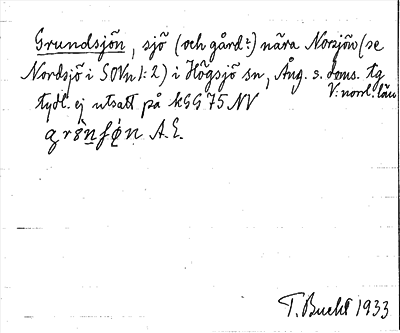 Grundsjön, sjö (och gård?) nära Norsjön (se
Nordsjö i SOVn 1:2) i Högsjö sn, Ång. s. doms. tg
V: norrl. län
tydl. ej utsatt på kGG 75 NV
A.E.
T. Bucht 1933